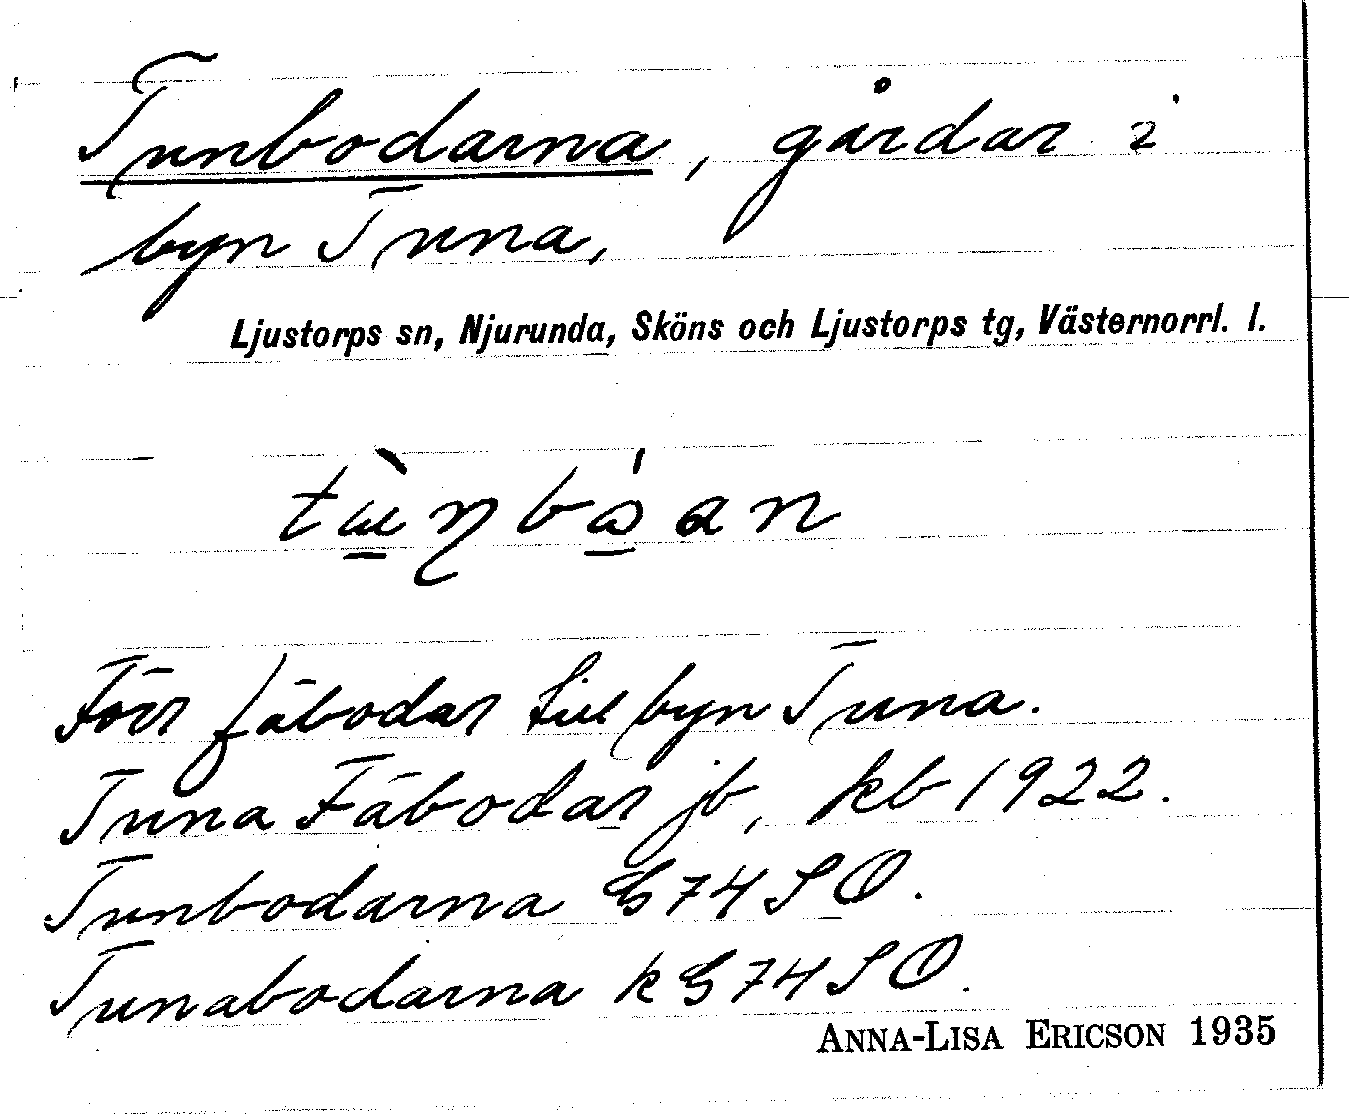 Tunbodarna, gårdar i
byn Tuna,
Ljustorps sn, Njurunda, Sköns och Ljustorps tg, Västernorrl. l.
Förr fäbodar till byn Tuna.
Tuna Fäbodar jb, kb 1922.
Tunbodarna G 74 SO.
Tunabodarna k G 74 SO.
ANNA-LISA ERICSON 1935